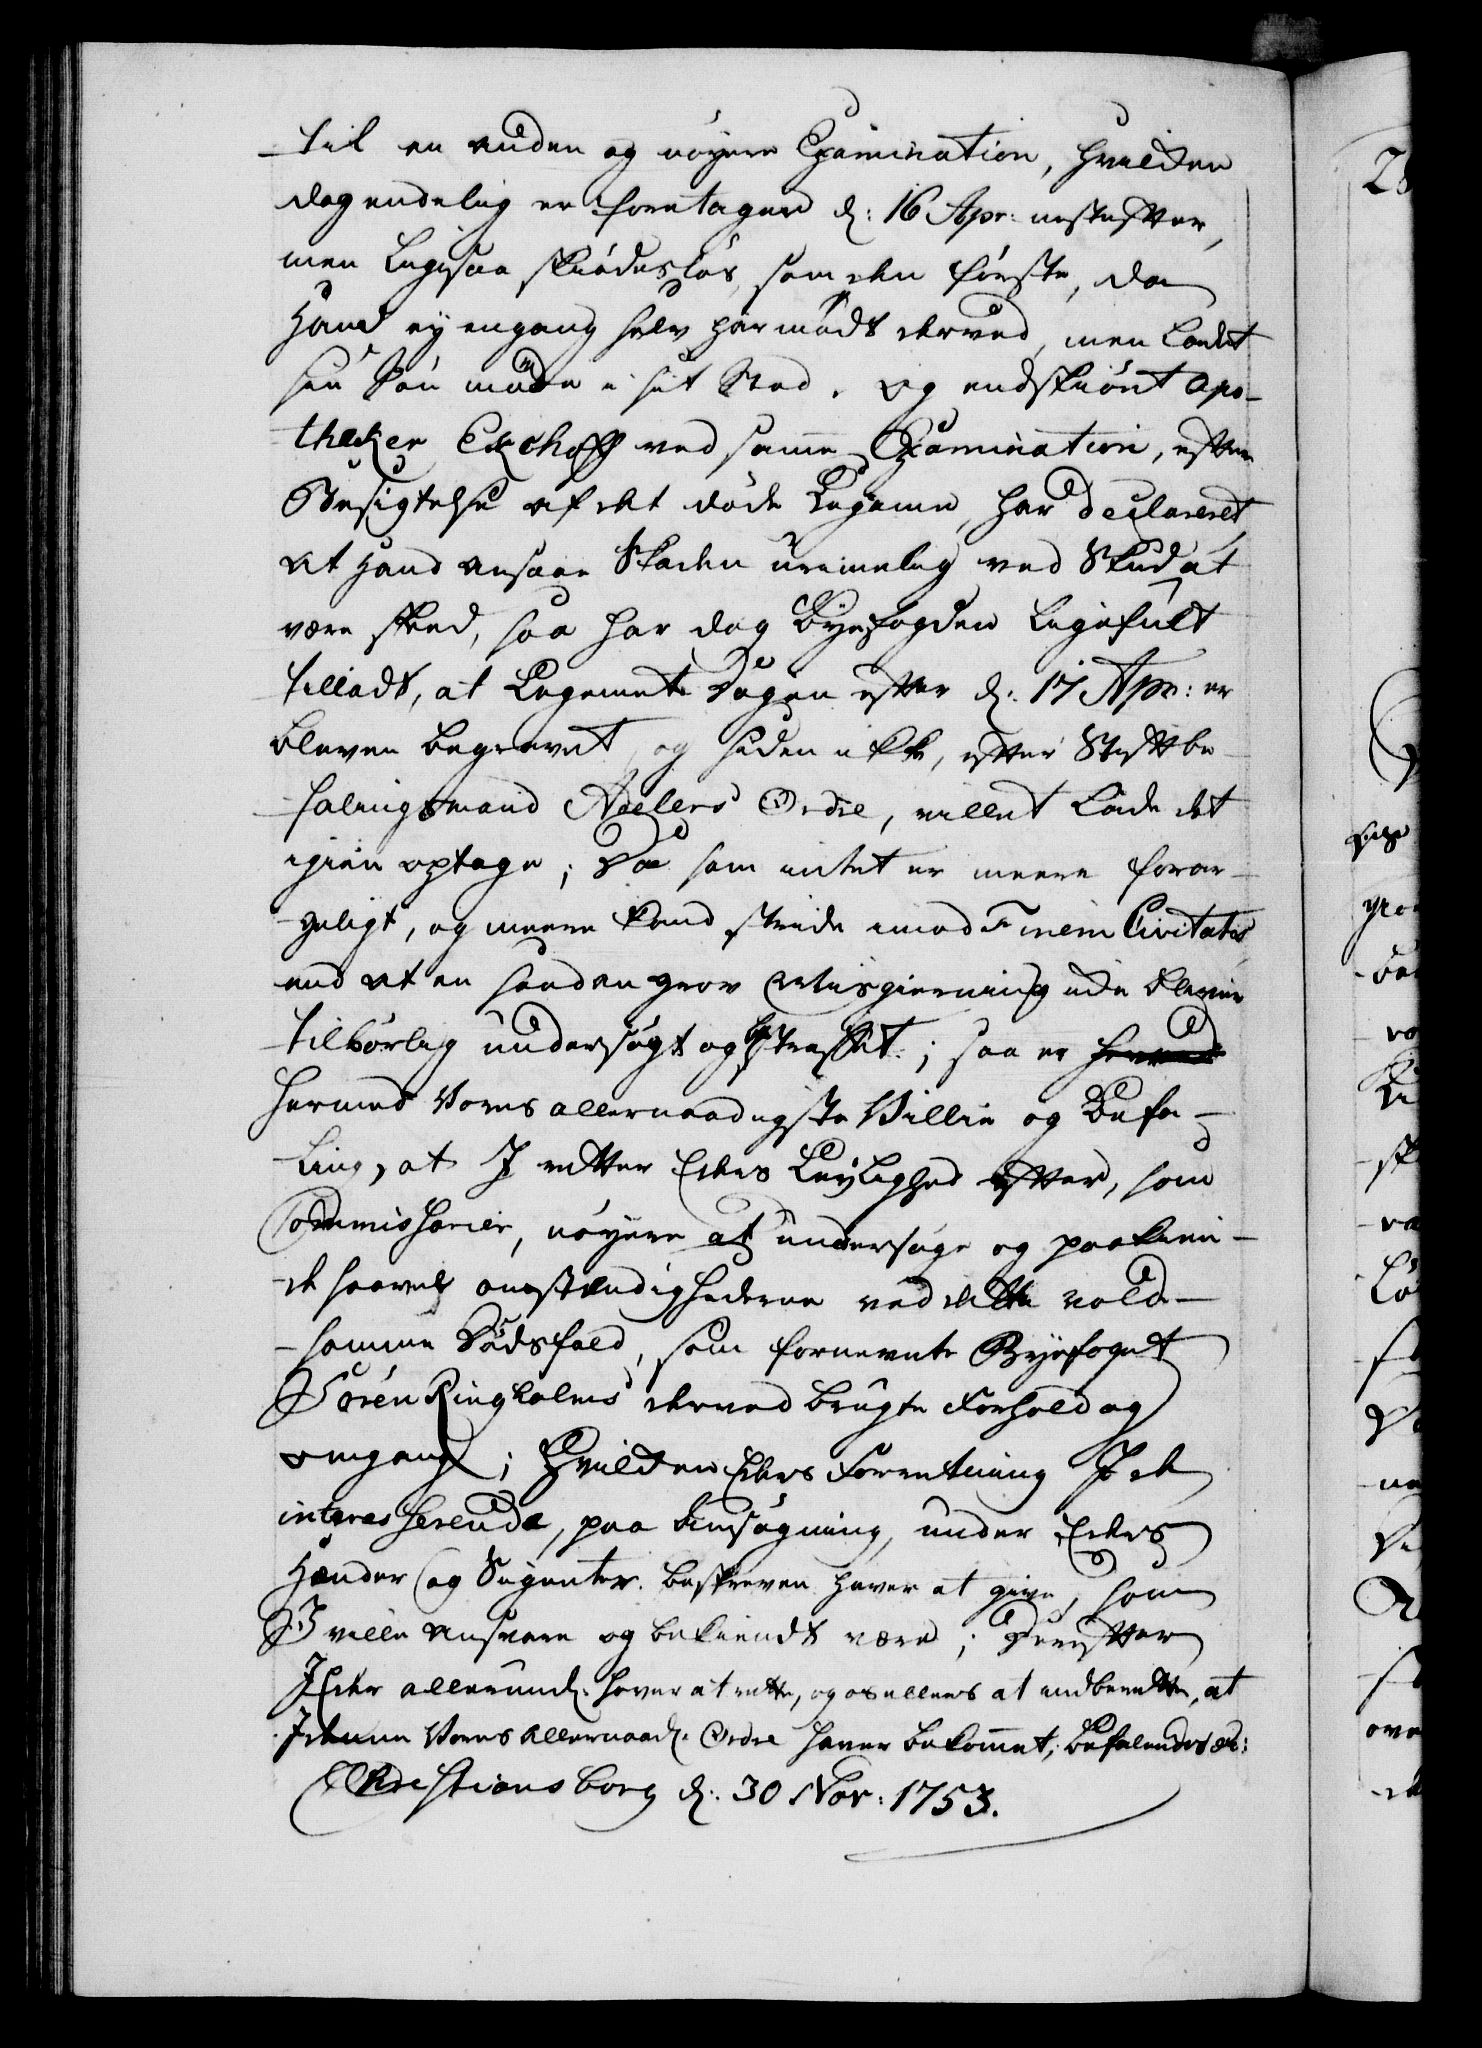 til en anden og nöyere Examination, hvilken
dog endelig er foretagen d: 16 Apr: nestefter,
men ligesaa skiödeslös, som den förste, da
Hand ey engang selv har mödt derved, men ladet
sin Sön möde i sit Sted. Og endskiönt Apo-
theker Eckhoff ved samme Examination, efter
Besigtelse af det döde Legeme, har declareret
at Hand ansaae Skaden urimelig ved Skud at
være skeed, saa har dog Byefogden ligefult
tilladt, at Legemet Dagen efter d: 17 Apr: er
bleven begravet, og siden ikke, efter Stiftbe-
falingsmand Adelers Ordre, villet lade det
igien optage; Da som intet er meere forar-
geligt, og meere kand stride imod Finem Civitatis
end at en saadan grov Misgierning uden bliver
tilbörlig undersögt og bestraffet; saa er
hermed Vores allernaadigste Villie og Befa-
ling, at I retter Eders Leylighed efter, som
Commissarier, nöyere at undersöge og paakien-
de saavel omstændighederne ved dette vold-
somme Dödsfald, som fornevnte Byefoget
Sören Ringholms derved brugte Forhold og
omgang; Hvilken Eders Forretning I de
interesserende, paa Ansögning, under Eders
Hænder og Signeter beskreven haver at give, som
I ville ansvare og bekiendt være; Derefter
I Eder allerund: haver at rette, og os ellers at indberette, at
I denne Vores allernaad: Ordre haver bekommet; Befalendes etc:
Christiansborg d: 30 Nov: 1753.